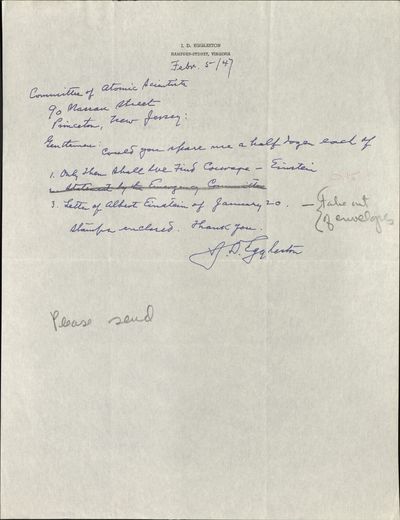 J. D. EGGLESTON
HAMPDEN-SYDNEY, VIRGINIA
Febr. 5/47
Committee of Atomic Scientists
90 Nassau Street
Princeton, New Jersey:
Gentlemen: Could you spare me a half dozen each of
1. Only Then Shall We Find Courage – Einstein
2. Statement by the Emergency Committee
3. Letter of Albert Einstein of January 20. — Take out
of envelopes
Stamps enclosed. Thank you.
J. D. Eggleston
Please send